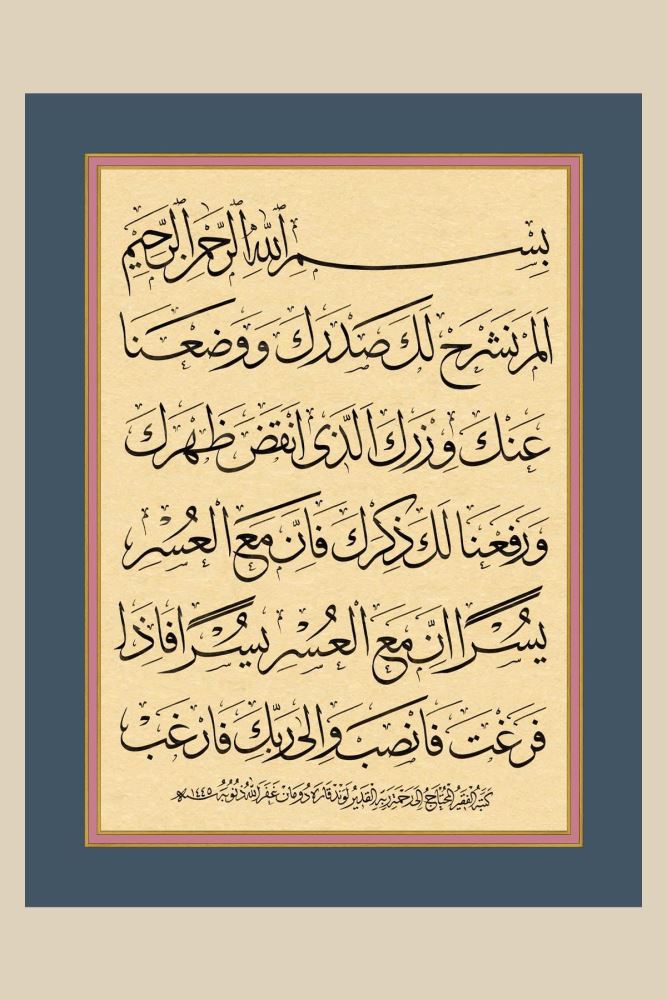 بِسْمِ اللهِ الرَّحْمٰنِ الرَّحِيْمِ
اَلَمْ نَشْرَحْ لَكَ صَدْرَكَ وَوَضَعْنَا
عَنْكَ وِزْرَكَ اَلَّذِى اَنْقَضَ ظَهْرَكَ
وَرَفَعْنَا لَكَ ذِكْرَكَ فَاِنَّ مَعَ الْعُسْرِ
يُسْرًا اِنَّ مَعَ الْعُسْرِ يُسْرًا فَاِذَا
فَرَغْتَ فَانْصَبْ وَاِلٰى رَبِّكَ فَارْغَبْ
كتبه الفقير المحتاج الى رحمة ربه القدير لوند قاره دومان غفر الله ذنوبه سنة ١٤٤٥